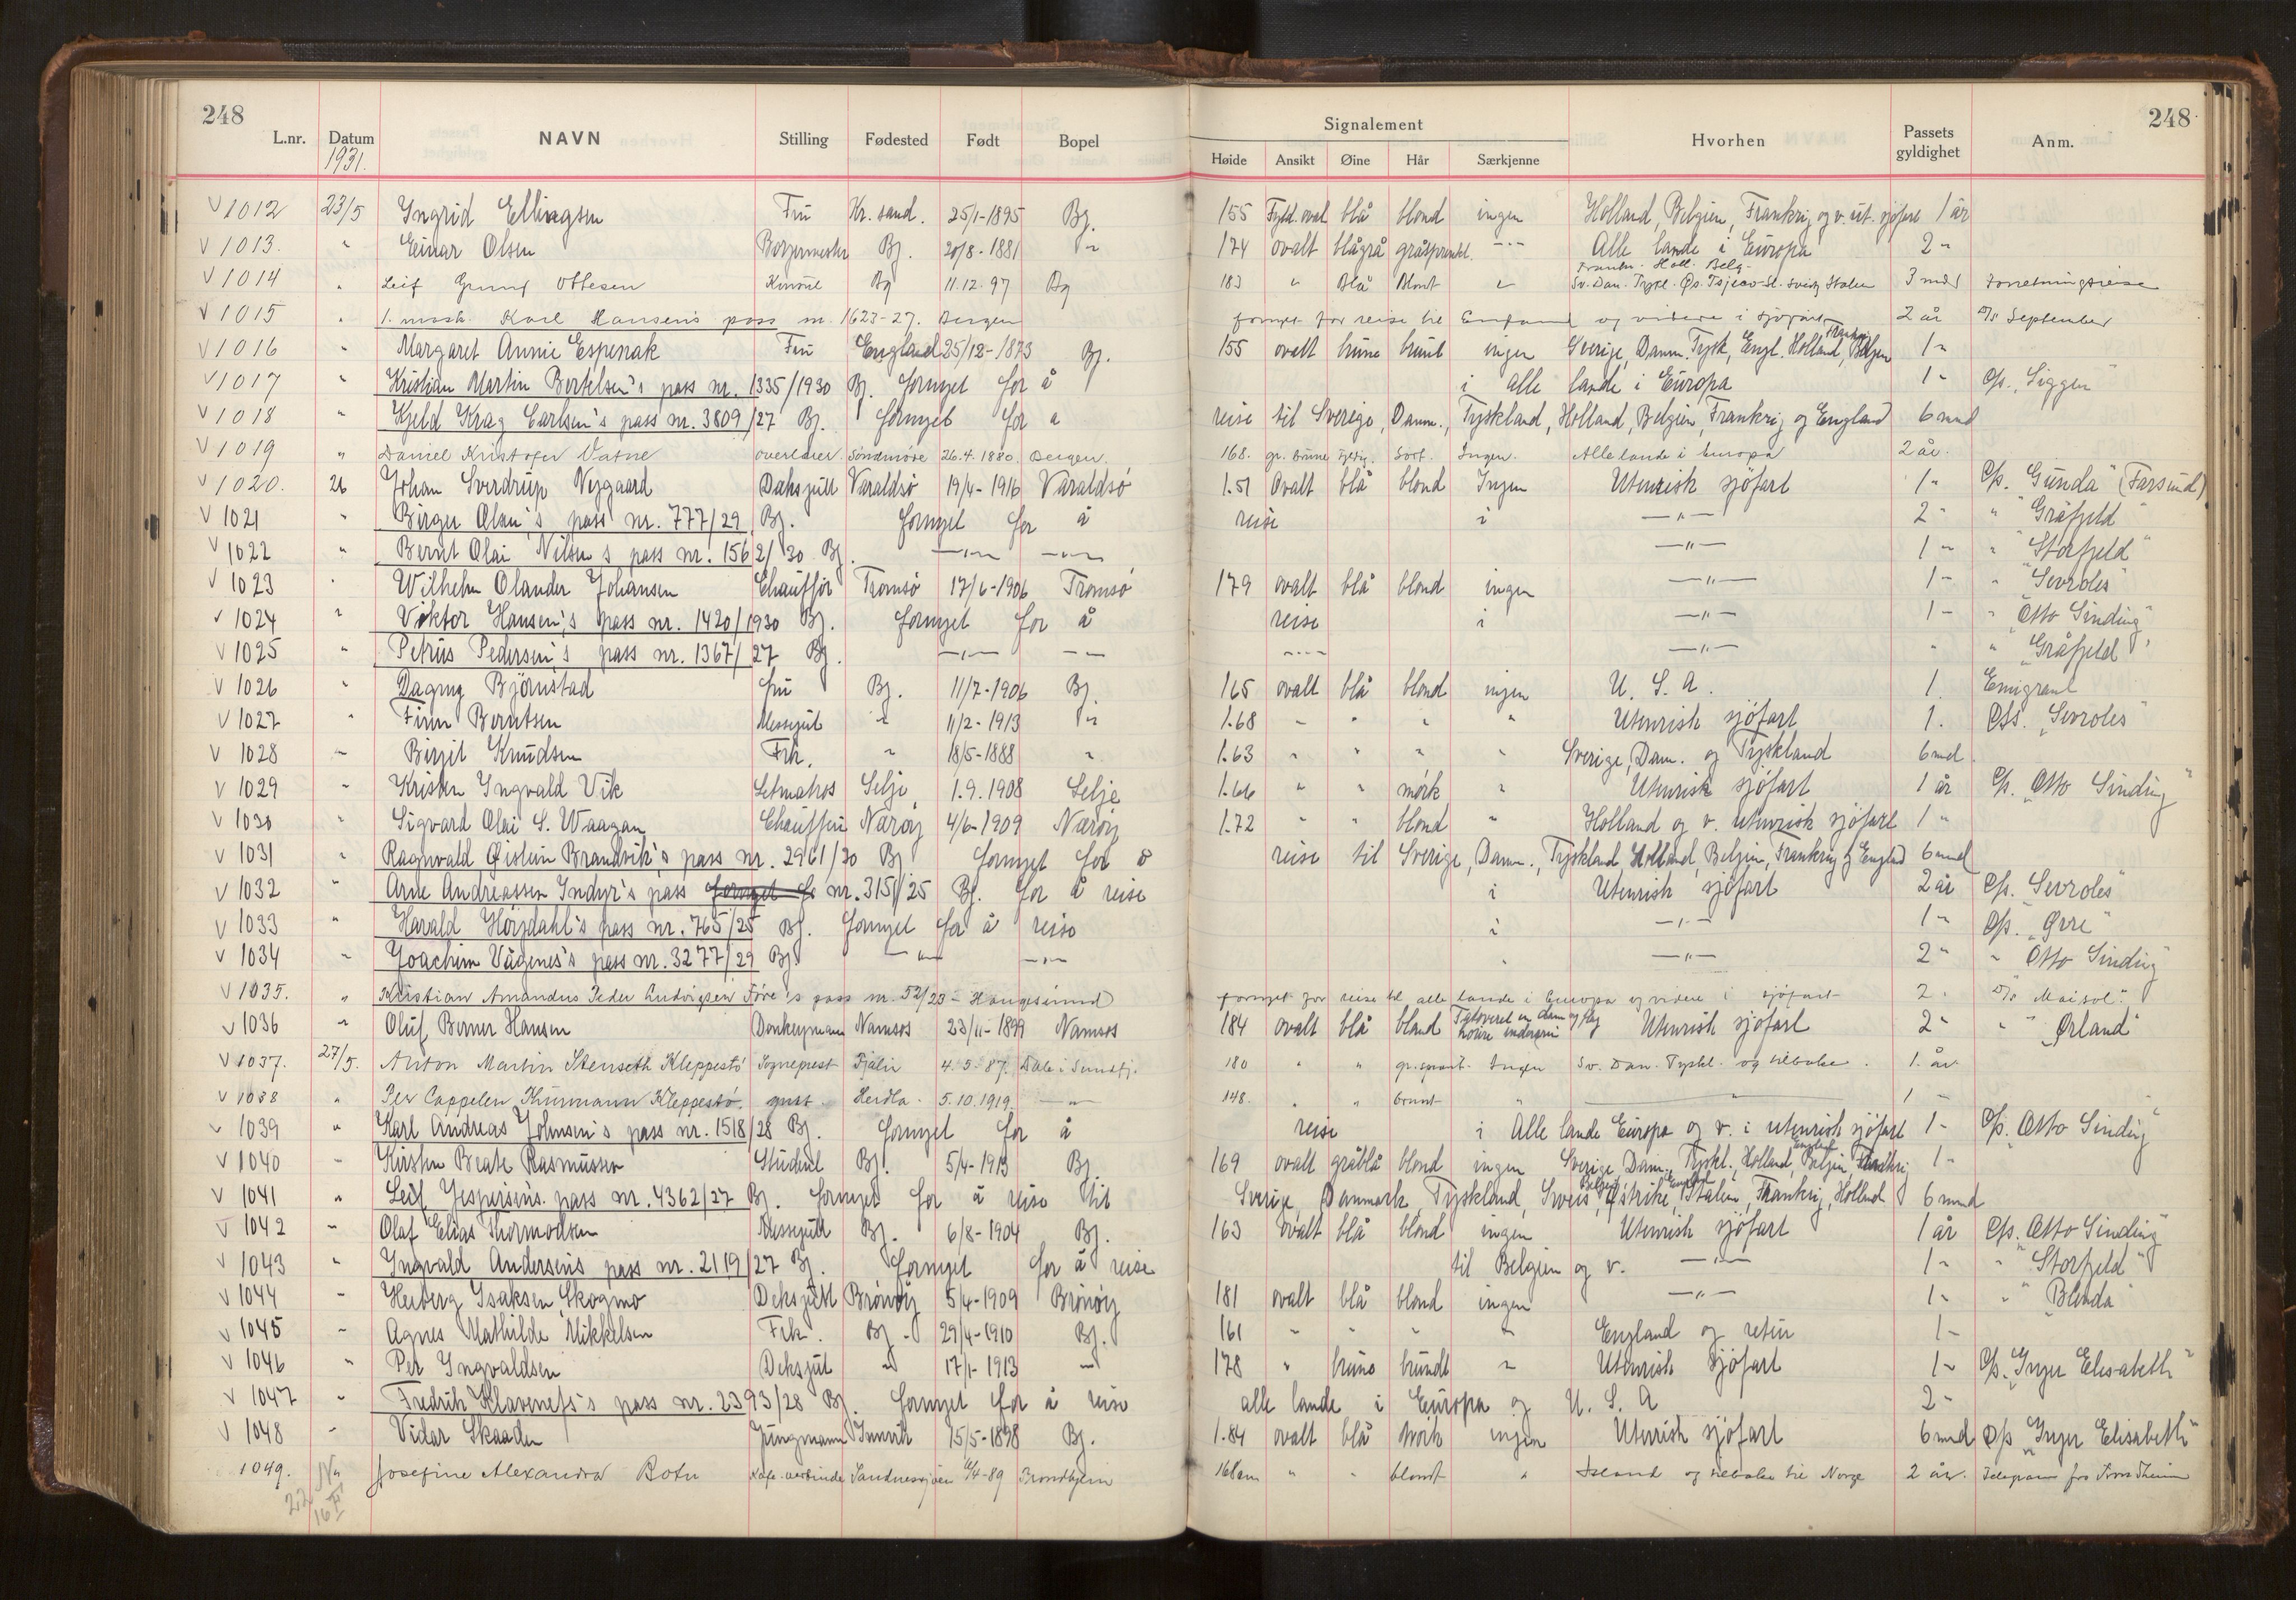 248
L.nr. Datum NAVN Stilling Fødested Født Bopel
1931.
Signalement
Høide Ansikt Øine Hår Særkjenne Hvorhen Passets gyldighet Anm.
248
V 1012 23/5 Ingrid Ellingsen Fru Kr. sand. 25/1-1895 Bg. 155 Fyld. oval blå blond ingen Holland, Belgien, Frankrig og v. ut. sjøfart 1 år
V 1013. " Einar Olsen Bg. 20/8-1881 " 174 ovalt blågrå gråsprenkl. -"- Alle lande i Europa 2 "
V 1014 " Leif Ottesen Bg 11.12.97 Bg 183 " Blå Blont " Frankr. Holl. Belg. Sv. Dan. Tyskl. Øs. Tsjecco-Sl. Sveits Italien 3 mdr Forretningsreise
V 1015 " 1. mask. Karl Hansen's pass nr. 1623-27. Bergen fornyet for reise til England og videre i sjøfart 2 år D/S September
V 1016 " Margaret Annie Espenak Fru England 25/12-1873 Bg. 155 ovalt brune brunt ingen Sverige, Danm. Tysk, Engl. Holland, Frankrig Belgien 1 "
V 1017 " Kristian Martin Bertelsen's pass nr. 1335/1930 Bg. fornyet for å i alle lande i Europa 1 " D/s. "Siggen"
V 1018 " Kjeld Krag Carlsen's pass nr. 3809/27 Bg. fornyet for å reise til Sverige, Danm., Tyskland, Holland, Belgien, Frankrig og England 6 mnd
V 1019 " Daniel Kristofer Vatne overlærer. Søndmøre 26.4.1880. Bergen. 168. gr. brune Sort. Ingen. Alle lande i Europa 2 år.
V 1020. 26 Johan Sverdrup Nygaard Deksgutt Varaldsø 19/4-1916 Varaldsø 1.51 Ovalt blå blond Ingen Utenrisk sjøfart 1 " D/s. "Gunda" (Farsund)
V 1021 " Birger Olsen's pass nr. 777/29 Bg. fornyet for å reise i -"- 2 " " "Gråfjeld"
V 1022 " Bernt Olai Nilsen's pass nr. 1562/30 Bg. -"- -"- -"- 1 " " "Storfjeld"
V 1023 " Wilhelm Olander Johansen Chauffør Tromsø 17/6-1906 Tromsø 179 ovalt blå blond ingen -"- 1 " " "Sevroles"
V 1024 " Viktor Hansen's pass nr. 1420/1930 Bg. fornyet for å reise i -"- 1 " " "Otto Sinding"
V 1025 " Petrus Pedersen's pass nr. 1367/27 Bg. -"- -"- -"- -"- " " "Gråfjeld"
V 1026 " Dagny Bjørnstad fru Bg. 11/7-1906 Bg. 165 ovalt blå blond ingen U. S. A. 1 Emigrant
V 1027 " Finn Berntsen Messegut " 11/2-1913 " 1.68 " " " " Utenrisk sjøfart 1. D/s. "Sevroles"
V 1028 " Birgit Knudsen Frk. " 18/5-1888 " 1.63 " " " " Sverige, Dam. og Tyskland 6 md
V 1029 " Kristen Ingvald Vik Letmatros Selje 1.9.1908 Selje 1.66 " " mørk " Utenrisk sjøfart 1 år D/s. "Otto Sinding"
V 1030 " Sigvard Olai S. Waagan Chauffeur Nærøy 4/6-1909 Nærøy 1.72 " " blond " Holland og v. utenrisk sjøfart 1 "
V 1031 " Ragnvald Øistein Brandvik's pass nr. 2961/30 Bg fornyet for å reise til Sverige, Danm., Tyskland Holland, Belgien, Frankrig og England 6 mnd
V 1032 " Arne Andreassen Indyr's pass fornyet fo nr. 3151/25 Bg. for å reise i Utenrisk sjøfart 2 år D/s. "Sevroles"
V 1033 " Harald Høydahl's pass nr. 765/25 Bg. fornyet for å reise i -"- 1 " D/s. "Orre"
V 1034 " Joachim Vågenes's pass nr. 3277/29 Bg. -"- -"- " -"- 2 " " "Otto Sinding"
V 1035. " Kristian Amandus Peder Ludvigsen Føre's pass nr. 52/23 - Haugesund fornyet for reise til alle lande i Europa og videre i sjøfart 2. D/s "Maisol".
V 1036 " Oluf Berner Hansen Donkeyman Namsos 23/11-1899 Namsos 184 ovalt blå blond Tatoveret en dam og flag høire underarm Utenrisk sjøfart 2 " " "Ørland"
V 1037. 27/5. Anton Martin Stenseth Kleppestø Sogneprest Fjaler 4.5.87. Dale i Sunnfj. 180 " " gr. sprænt. Ingen Sv. Dan. Tyskl. og tilbake. 1. år
V 1038 " Per Cappelen Kleppestø. gutt. Herdla. 5.10.1919. -"- 148. " " brunt " -"- 1 -
V 1039 " Karl Andreas Johnsen's pass nr. 1518/28 Bg. fornyet for å reise i Alle lande Europa og v. i utenrisk sjøfart 1 " D/s. "Otto Sinding"
V 1040 " Kirsten Beate Rasmussen Student Bg. 5/4-1913 Bg. 169 ovalt gråblå blond ingen Sverige, Danm., Tyskl., Holland, England Belgien, Frankrig 1 "
V 1041 " Leif Jespersen's pass nr. 4362/27 Bg. fornyet for å reise til Sverige, Danmark, Tyskland, Sveis, Belgien Østrike, England Italien, Frankrig, Holland 6 mnd
V 1042 " Olaf Elias Thormodsen Messegutt Bg. 6/8-1904 Bg. 163 ovalt blå blond ingen Utenrisk sjøfart 1 år D/s. "Otto Sinding"
V 1043 " Ingvald Andersen's pass nr. 2119/27 Bg. fornyet for å reise til Belgien og v. -"- 1 " " "Storfjeld"
V 1044 " Herberg Isaksen Skogmo Deksgutt Brønøy 5/4-1909 Brønøy 181 ovalt blå blond ingen -"- 1 " " "Blinda"
V 1045 " Agnes Mathilde Mikkelsen Frk. Bg. 29/4-1910 Bg. 161 " " " " England og retur 1 "
V 1046 " Per Ingvaldsen Deksgut " 17/1-1913 " 178 " brune brundt " Utenrisk sjøfart 1 " D/s. "Inger Elisabeth"
V 1047 " Fredrik Klaveness's pass nr. 2393/28 Bg. fornyet for å reise alle lande i Europa og U. S. A 2 "
V 1048 " Vidar Skaaden Jungmann Innvik 15/5-1898 Bg. 1.84 ovalt blå mørk ingen Utenrisk sjøfart 6 mnd D/s "Inger Elisabeth"
1049. " Josefine Alexandra Botn Kafe-vertinde Sandnessjøen 16/4-89 Trondhjem 168 cm " " blondt " Island og tilbake til Norge 2 år. Telegram fra Trondheim